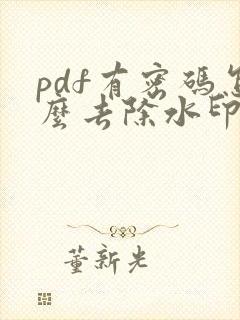 pdf有密碼怎
麼去除水印
董新光